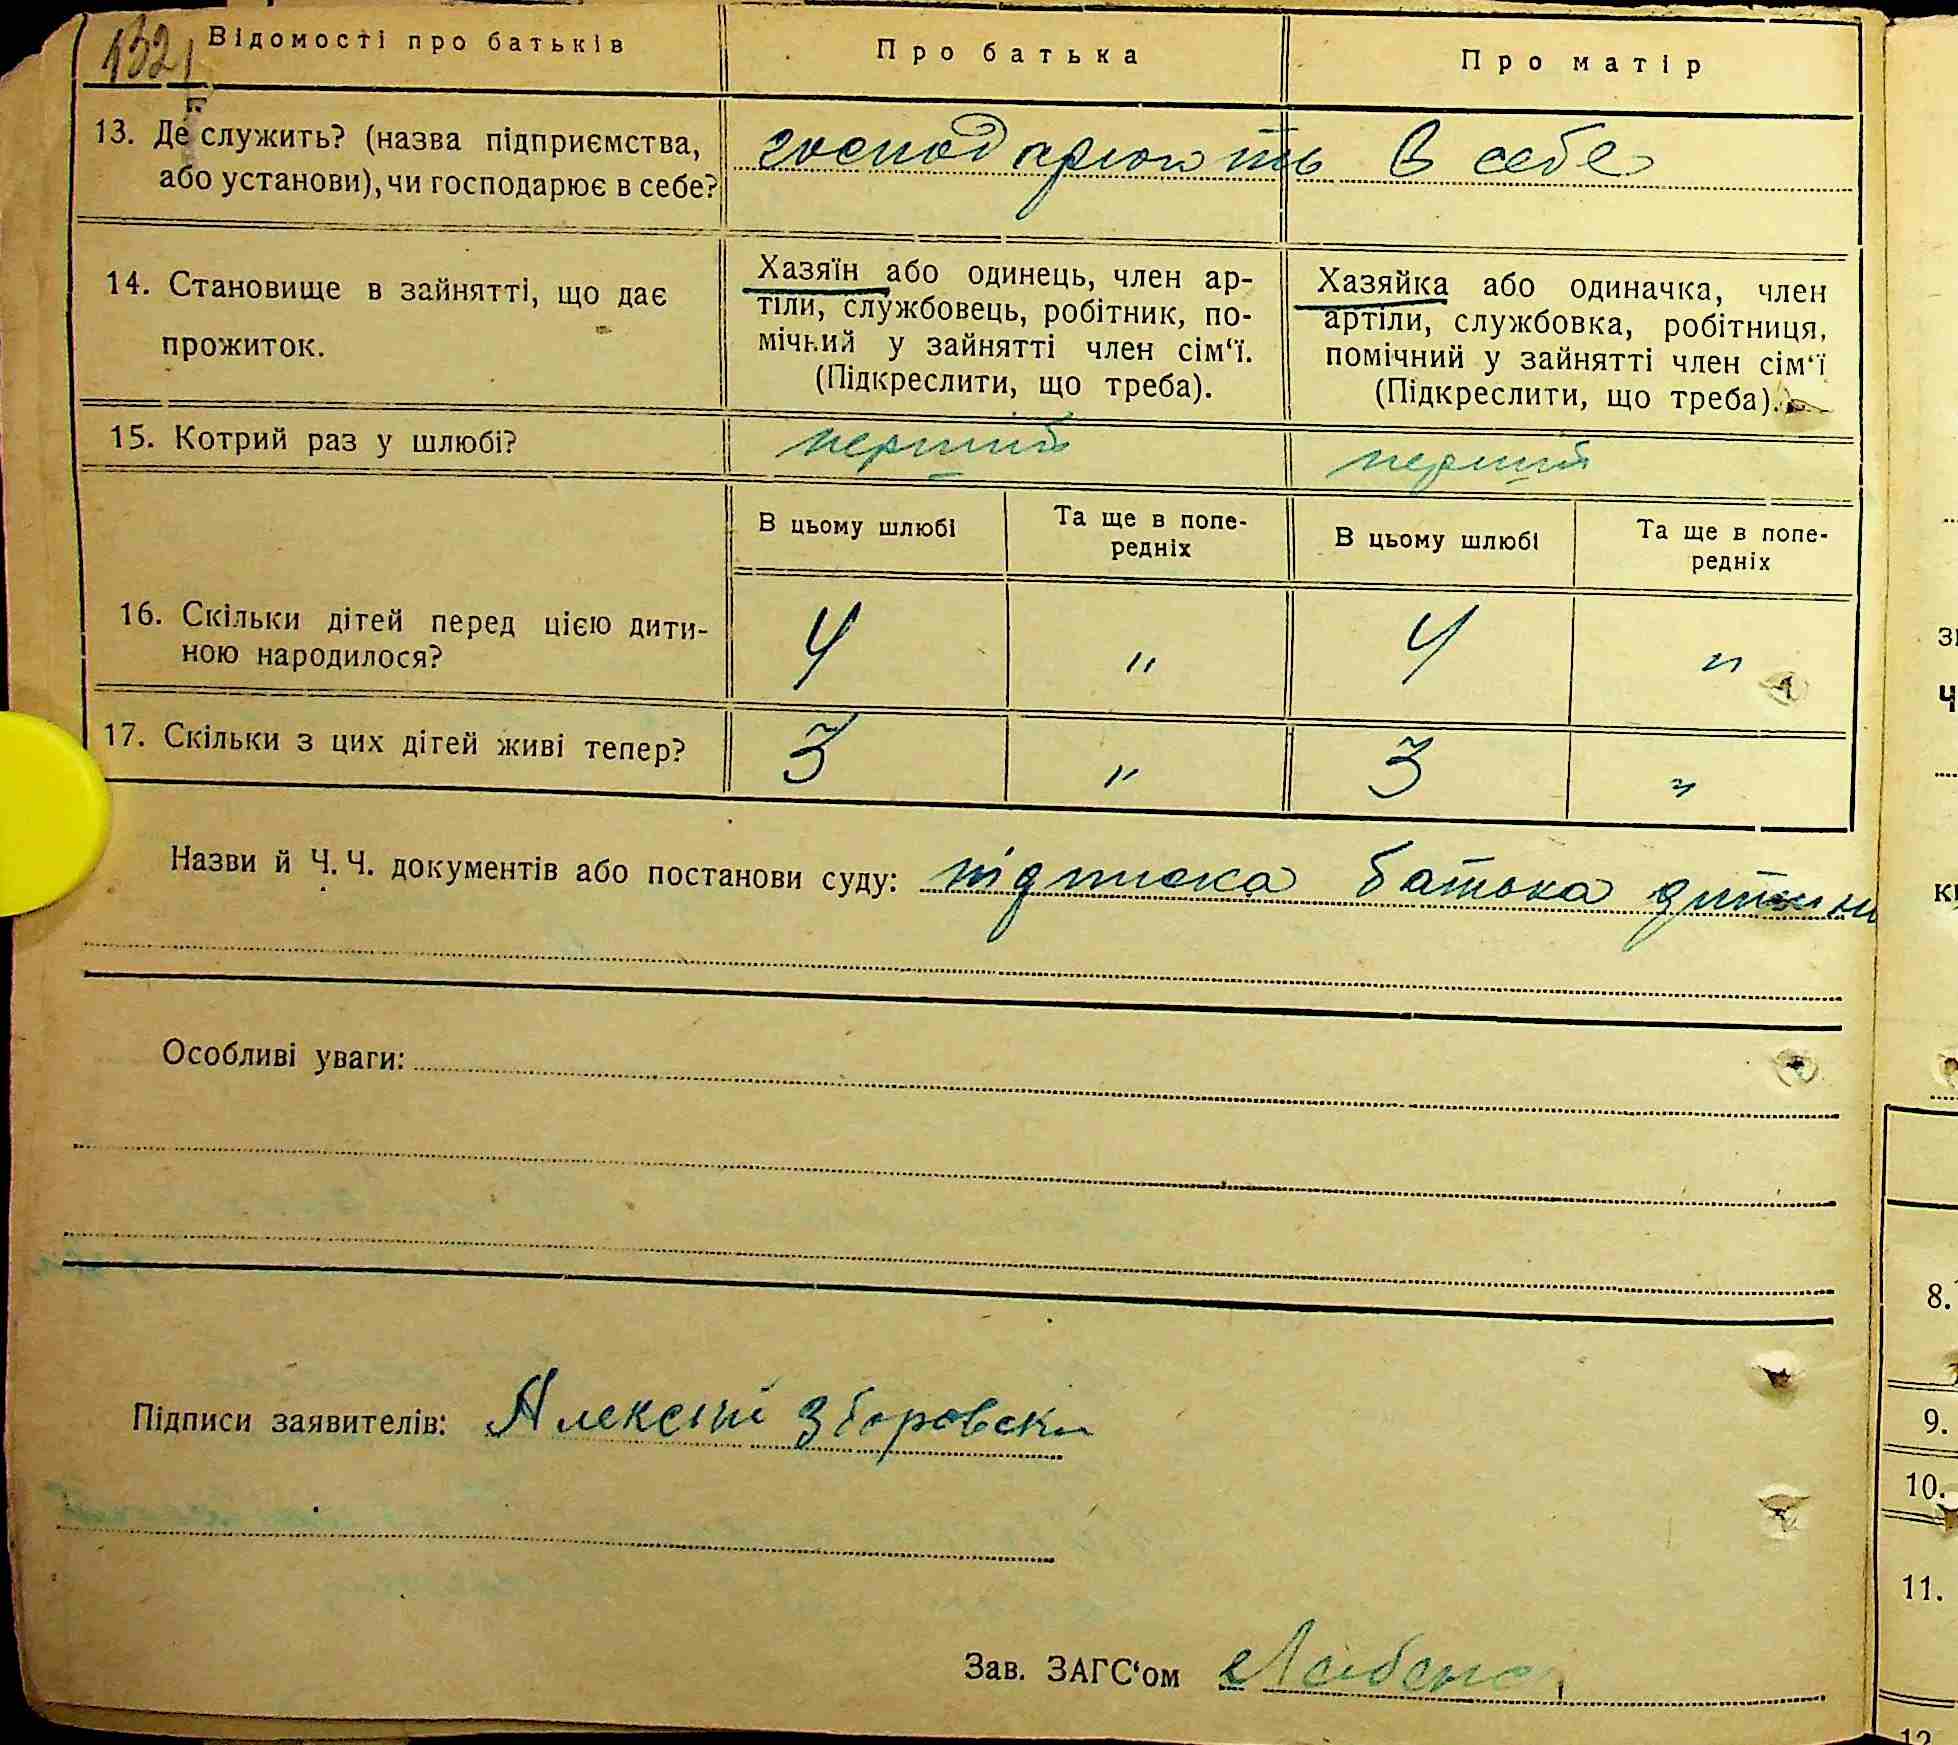 132
Відомості про батьків
Про батька
Про матір
13. Де служить? (назва підприємства,
або установи), чи господарює в себе?
господарюють в себе
14. Становище в зайнятті, що дає
прожиток.
Хазяїн або одинець, член ар-
тіли, службовець, робітник, по-
мічний у зайнятті член сім‘ї.
(Підкреслити, що треба).
Хазяйка або одиначка, член
артіли, службовка, робітниця,
помічний у зайнятті член сім‘ї
(Підкреслити, що треба).
15. Котрий раз у шлюбі?
перший
перший
В цьому шлюбі
Та ще в попе-
редніх
В цьому шлюбі
Та ще в попе-
редніх
16. Скільки дітей перед цією дити-
ною народилося?
4
"
4
"
17. Скільки з цих дітей живі тепер?
3
"
3
"
Назви й Ч. Ч. документів або постанови суду: підписка батька дитини
Особливі уваги:
Підписи заявителів: Алексій Зборовски
Зав. ЗАГС‘ом
8.
9.
10.
11.
12